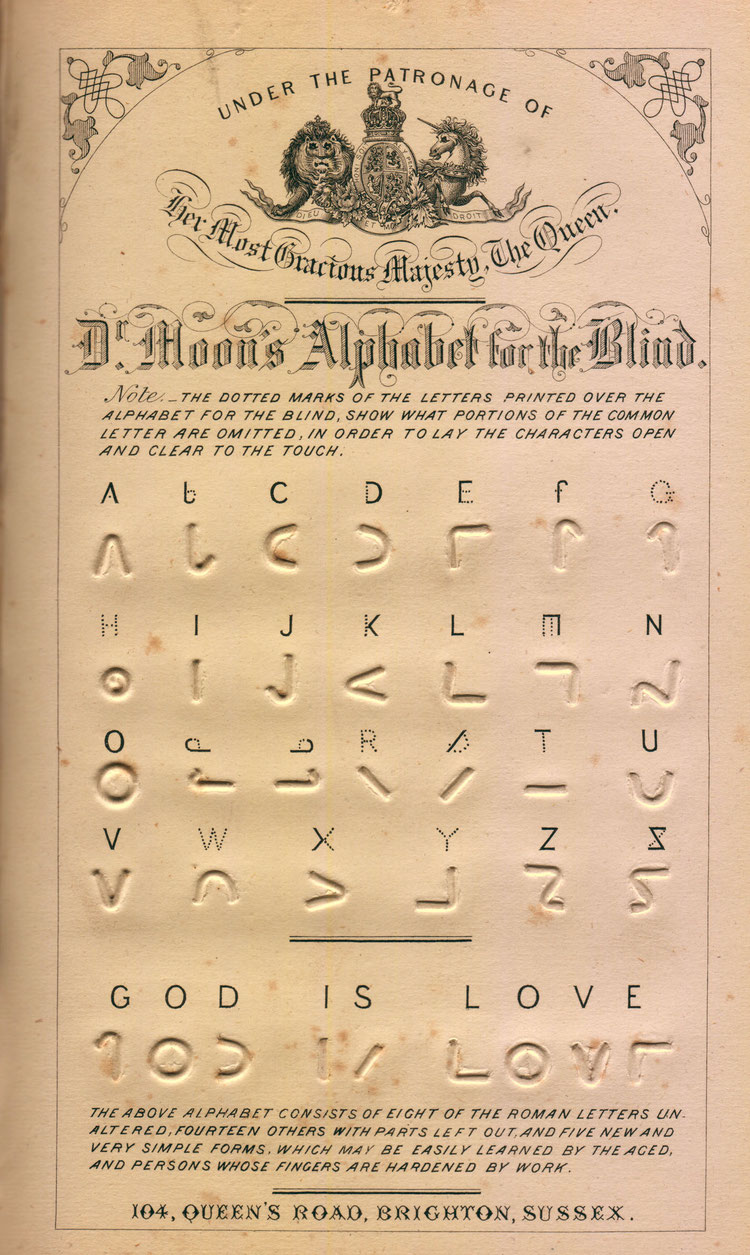 UNDER THE PATRONAGE OF
DIEU ET DROIT
Her Most Gracious Majesty, The Queen.
Dr. Moon's Alphabet for the Blind.
Note._ THE DOTTED MARKS OF THE LETTERS PRINTED OVER THE
ALPHABET FOR THE BLIND, SHOW WHAT PORTIONS OF THE COMMON
LETTER ARE OMITTED, IN ORDER TO LAY THE CHARACTERS OPEN
AND CLEAR TO THE TOUCH.
A b C D E f G
H I J K L M N
O P Q R S T U
V W X Y Z &
GOD IS LOVE
THE ABOVE ALPHABET CONSISTS OF EIGHT OF THE ROMAN LETTERS UN-
ALTERED, FOURTEEN OTHERS WITH PARTS LEFT OUT, AND FIVE NEW AND
VERY SIMPLE FORMS, WHICH MAY BE EASILY LEARNED BY THE AGED,
AND PERSONS WHOSE FINGERS ARE HARDENED BY WORK.
104, QUEEN'S ROAD, BRIGHTON, SUSSEX.